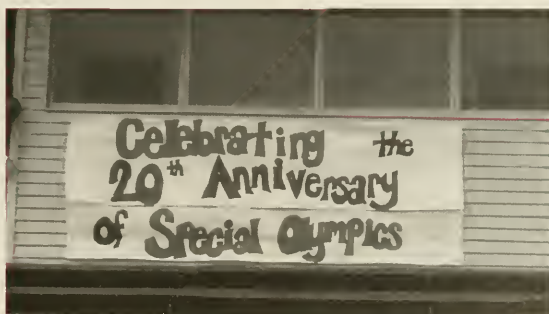 Celebrating the
20th Anniversary
of Special Olympics